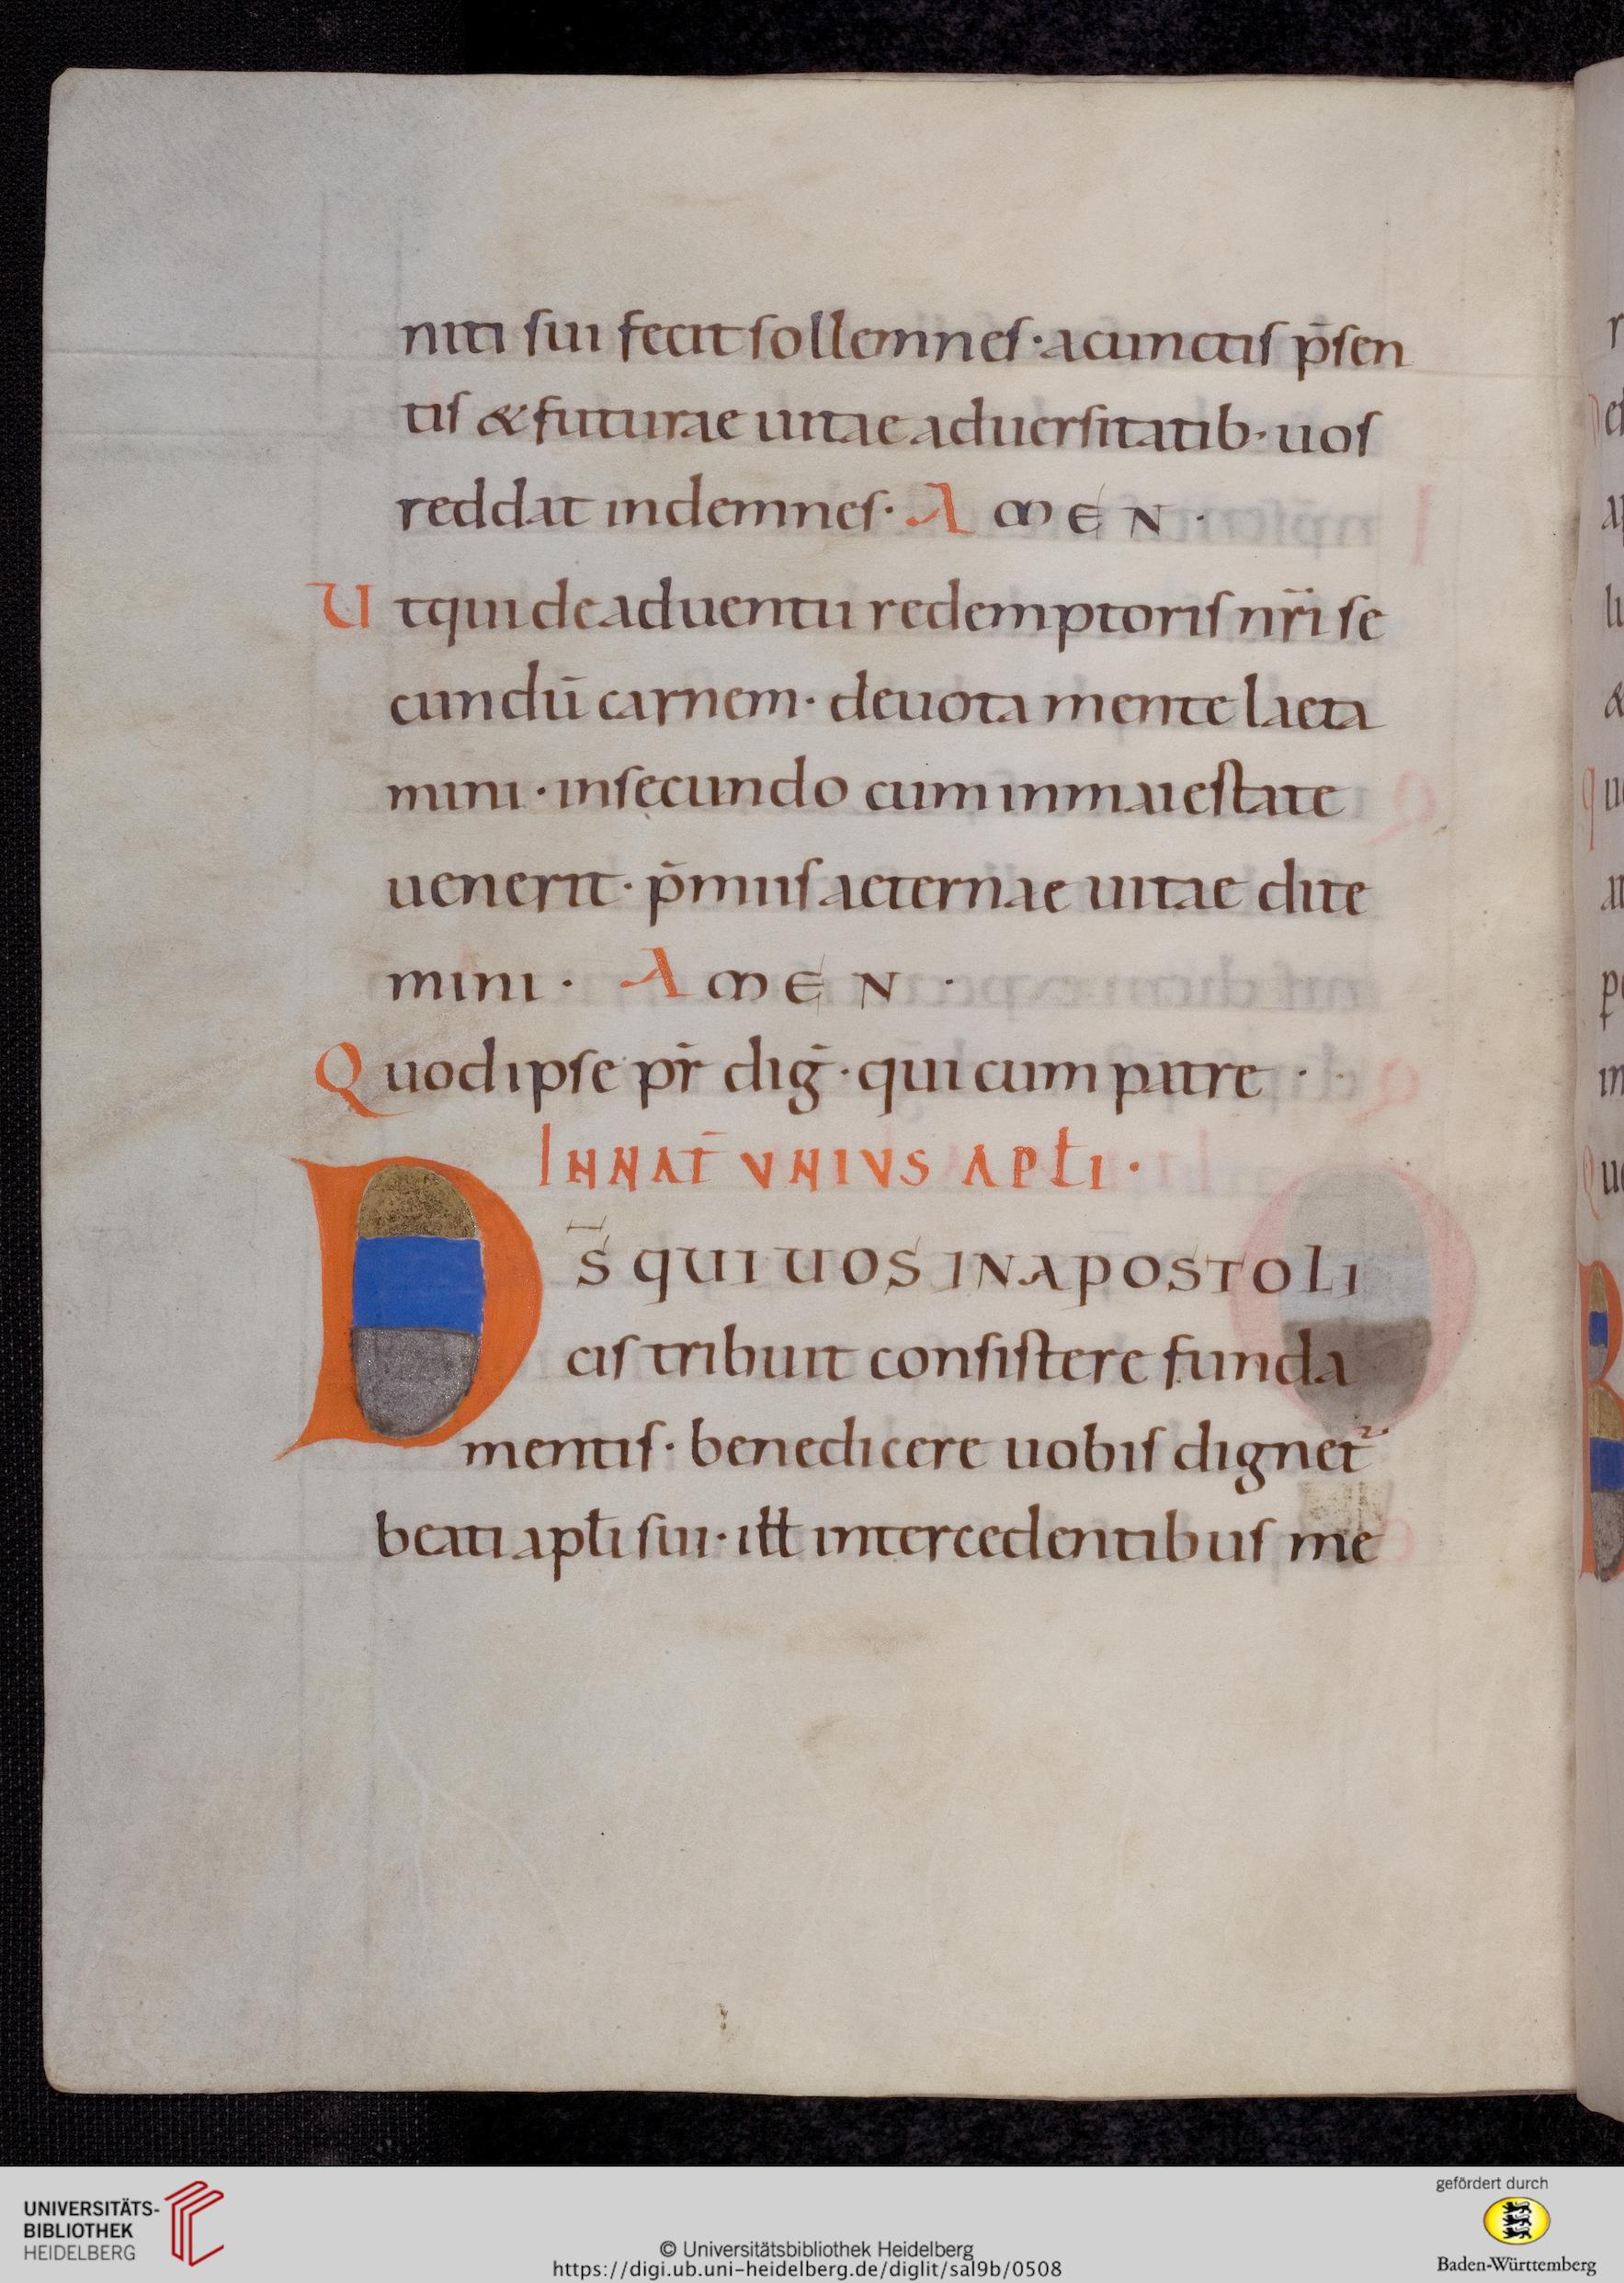 niti sui fecit sollemnes · a cunctis p̄sen
tis & futurae uitae aduersitatib· uos
reddat indemnes · AMEN ·
Ut qui de aduentu redemptoris nr̄i se
cundū carnem · deuota mente laeta
mini · in secundo cum in maiestate
uenerit · p̄miis aeternae uitae dite
mini · AMEN ·
Quod ipse pr̄ dig̅ · qui cum patre ·
IN NAT̄ VNIVS APƚI ·
DS̄ QUI UOS IN APOSTOLI
cis tribuit consistere funda
mentis · benedicere uobis dignet᷑
beati apƚi sui · iƚƚ intercedentibus me
UNIVERSITÄTS-
BIBLIOTHEK
HEIDELBERG
© Universitätsbibliothek Heidelberg
https://digi.ub.uni-heidelberg.de/diglit/sal9b/0508
gefördert durch
Baden-Württemberg